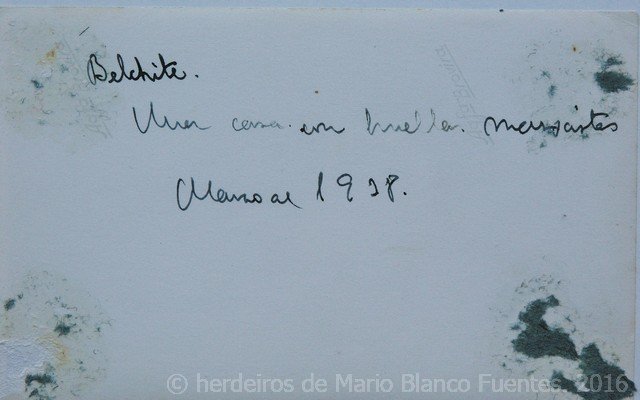 Belchite.
Una casa con huella marxistas
Marzo de 1938.
© herdeiros de Mario Blanco Fuentes, 2016